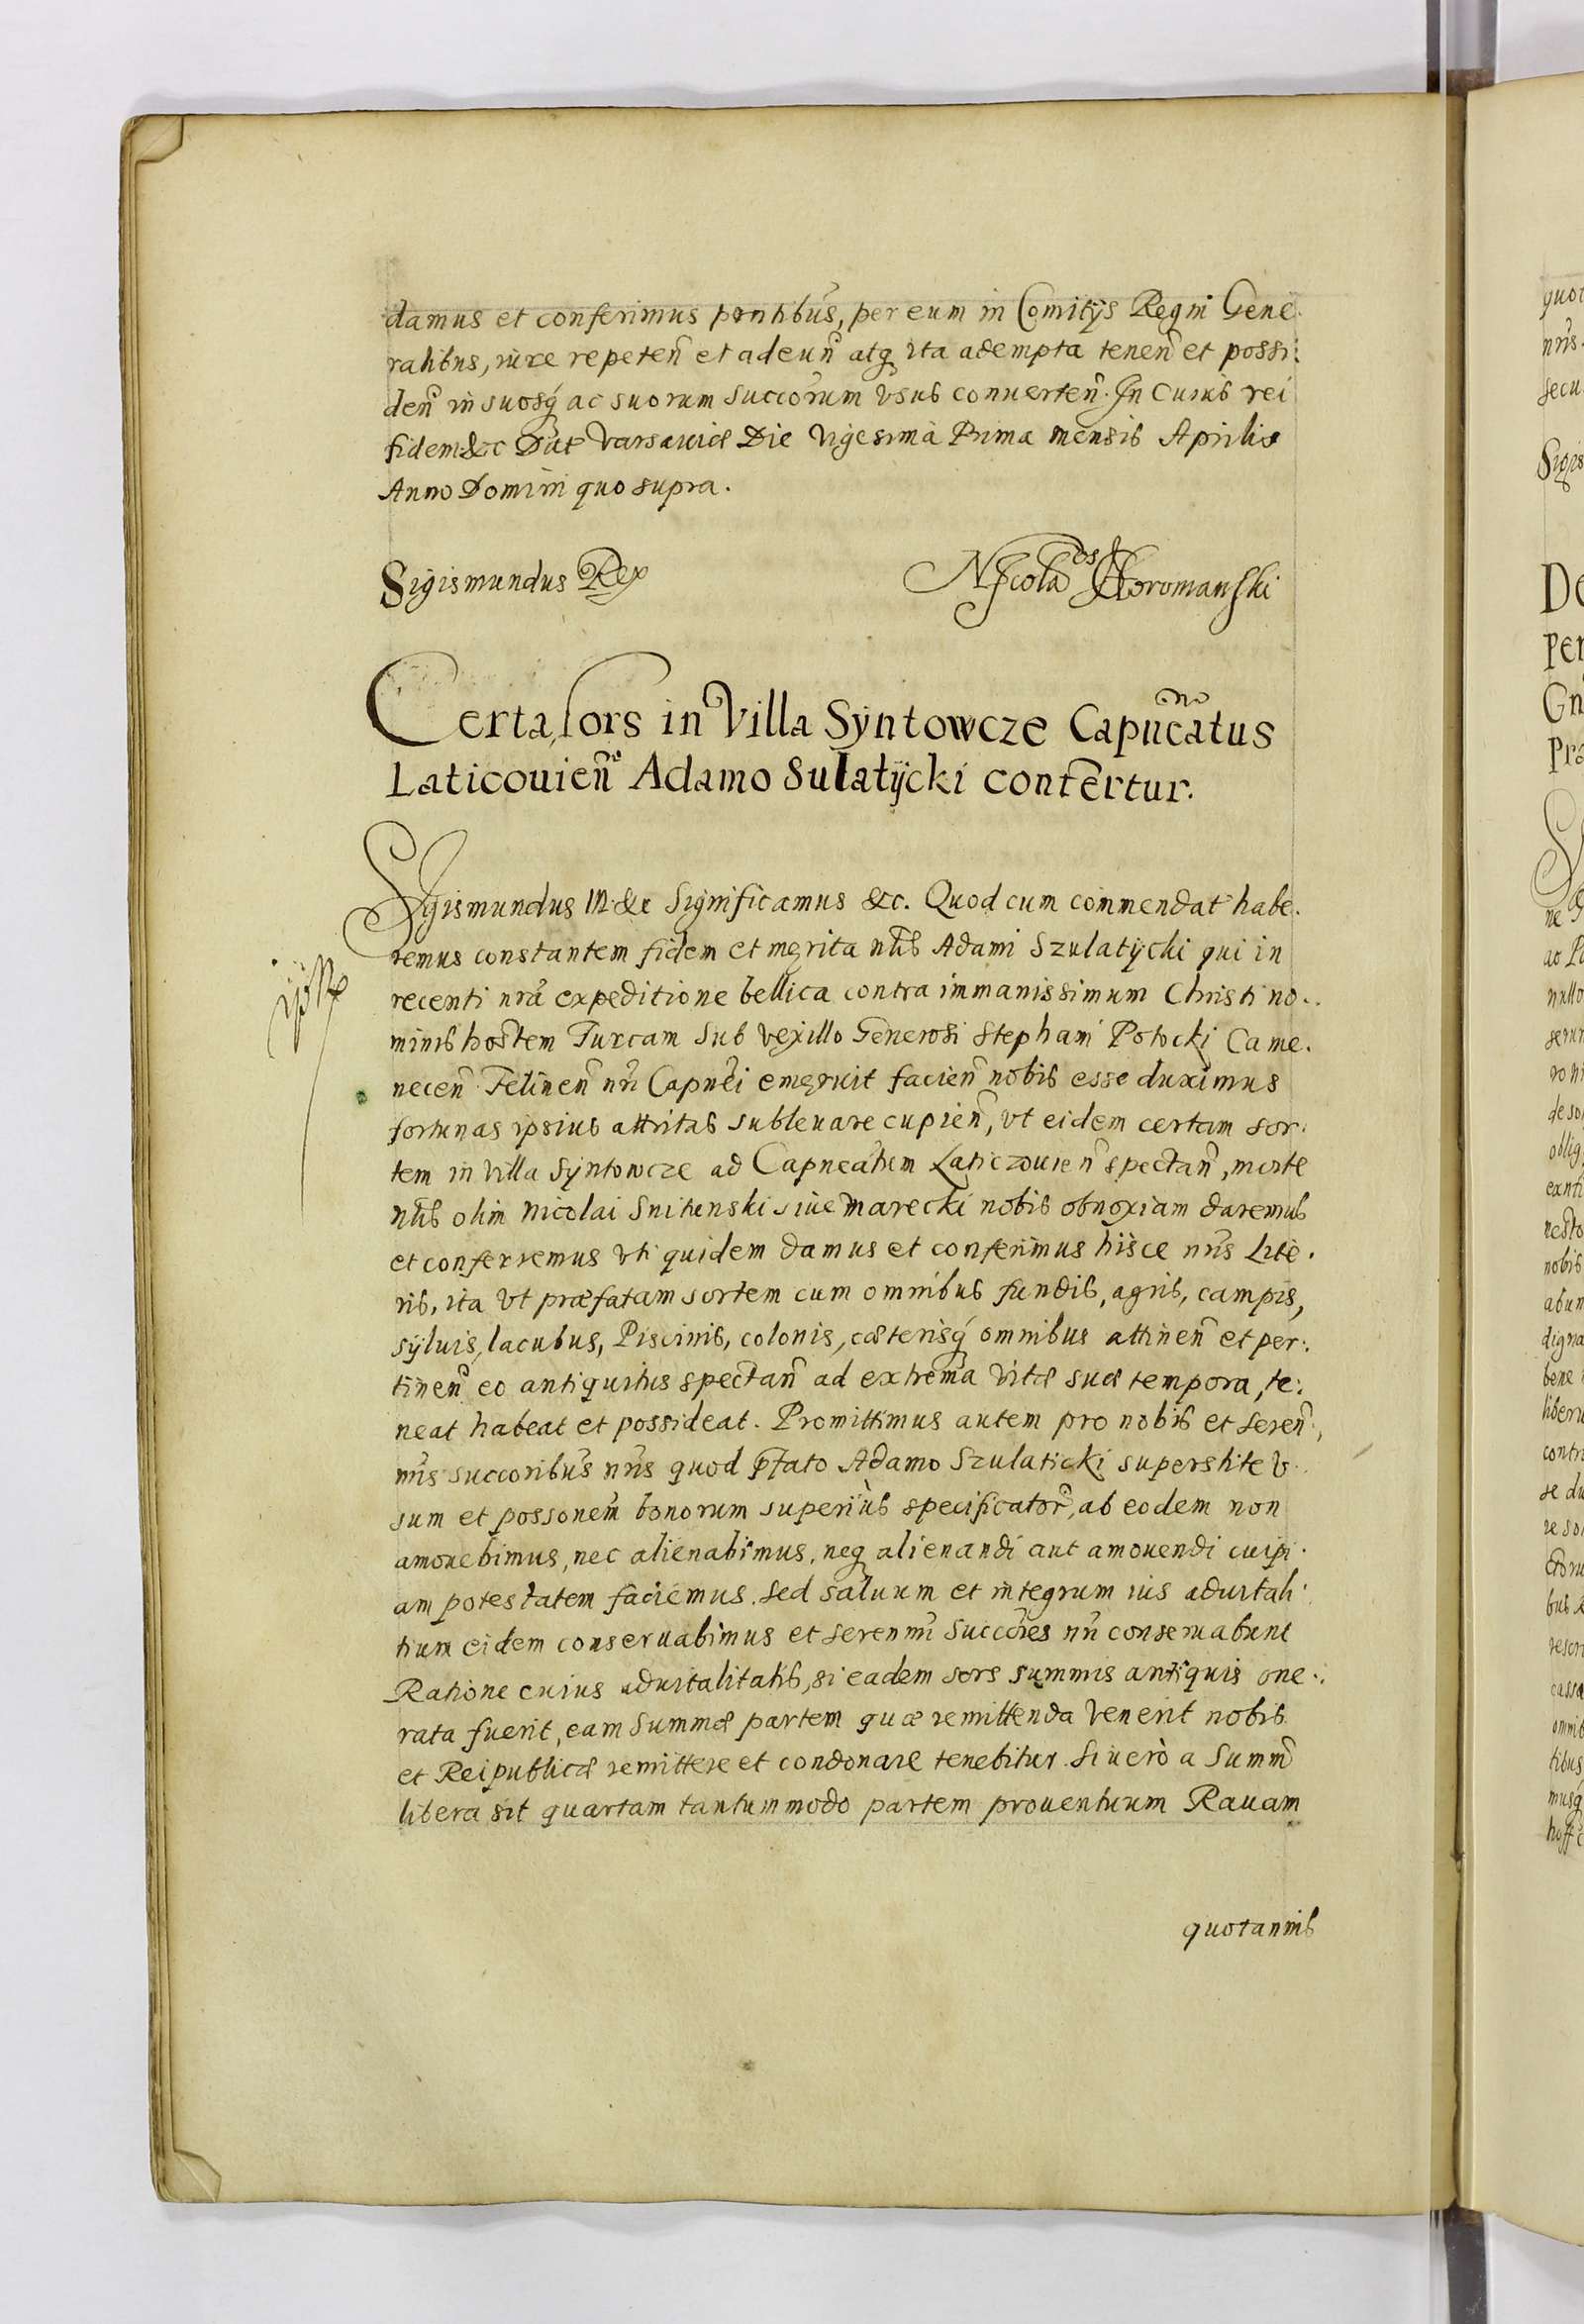 damus et conferimus pñtibus, per eum in Comitÿs Regni Gene.
ralibus, iure repeteñ et adeuñ atq ita adempta teneñ et possi:
deñ in suosq́ ac suorum Succõrum vsus conuerteñ. In Cuius rei
fidem &c Dat̃ Varsauiæ Die Vigesimà Prima mensis Aprilis
Anno Domini quo supra.
Sigismundus Rex
Nicola9 Ds Horomanski
Certa sors in Villa Syntowcze Capñeatus
Laticouieñ Adamo Sulatÿcki confertur.
Sigismundus III &c Significamus &c. Quod cum commendat̃ habe.
remus constantem fidem et merita nłis Adami Szulatÿcki qui in
recenti nrã expeditione bellica contra immanissimum Christi no..
minis hostem Turcam Sub Vexillo Generosi Stephani Potocki Came.
neceñ Felineñ nrĩ Capnẽi emeruit facieñ nobis esse duximus
fortunas ipsius attritas subleuare cupieñ, vt eidem certam sor.
tem in Villa Syntowcze ad Capneãtum Laticzouieñ spectañ, morte
nłis olim Nicolai Snitunski siue Marecki nobis obnoxiam daremus
et conferremus vti quidem damus et conferimus hisce nrĩs Lite.
ris, ita vt præfatam sortem cum omnibus fundis, agris, campis,
sÿluis, lacubus, Piscinis, colonis, cæterisq́ omnibus attineñ et per:.
tineñ eo antiquitus spectañ ad extrema vitæ suæ tempora, te:.
neat habeat et possideat. Promittimus autem pro nobis et Sereñ,
mis succoribũs nrĩs quod p̃fato Adamo Szulaticki superstite V.
sum et possonem̃ bonorum superiùs specificator̃, ab eodem non
amouebimus, nec alienabimus, neq alienandi aut amouendi cuipi.
am potestatem faciemus. Sed saluum et integrum ius aduitali.
tium eidem conseruabimus et Serenmĩ Succõres nrĩ conseruabunt
Ratione cuius aduitalitatis, si eadem sors summis antiquis one.:
rata fuerit, eam Summæ partem quæ remittenda venerit nobis
et Reipublicæ remittere et condonare tenebitur. Si verò a Summ̃
libera sit quartam tantummodo partem prouentuum Rauam
quotannis